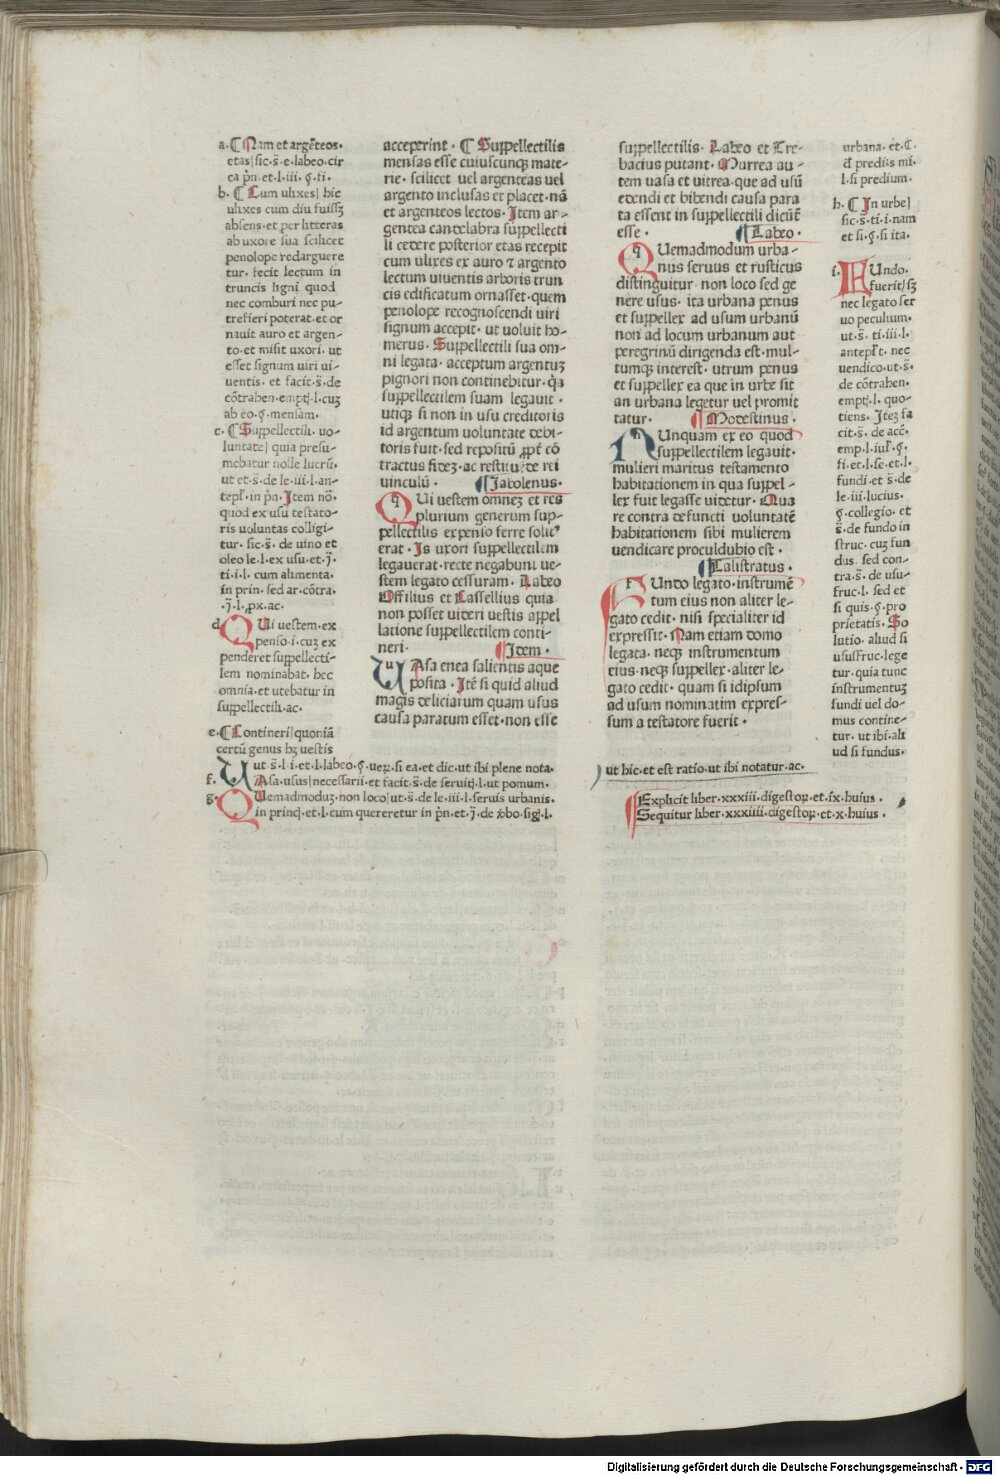 a. ¶ Nam et argēteos.
etas| sic. s̄. e. labeo. cir
ca p̄n. et. l. iii. §. fi.
b. ¶ Cum ulixes| hic
ulixes cum diu fuissꝫ
absens. et per litteras
ab uxore sua scilicet
penolope redarguere
tur. fecit lectum in
truncis ligni quod
nec comburi nec pu-
trefieri poterat. et or
nauit auro et argen-
to. et misit uxori. ut
esset signum uiri ui-
uentis. et facit. s̄. de
cōtrahen. emptį. l. cuꝫ
ab eo. §. mensam.
c. ¶ Suppellectili. uo-
luntate| quia presu-
mebatur nolle lucrū.
ut et. s̄. de le. iii. l. an-
tepľ. in p̄n. Item nō.
quod ex usu testato-
ris uoluntas colligi-
tur. sic. s̄. de uino et
oleo le. l. ex usu. et. j̄.
ti. i. l. cum alimenta.
in prin. sed ar. cōtra.
. j̄. l. ꝓx. ac.
d. QUi uestem. ex
penso. i. cuꝫ ex
penderet suppellecti-
lem nominabat. hec
omnia. et utebatur in
suppellectili. ac.
e. ¶ Contineri| quoniā
certū genus hꝫ uestis
ut. s̄. l. i. et. l. labeo. §. ueꝝ. si ea. et dic. ut ibi plene nota.
f. UAsa. usus| necessarii. et facit. s̄. de seruitį. l. ut pomum.
g. QUemadmoduꝫ. non loco| ut. s̄. de le. iii. l. seruis urbanis.
in princį. et. l. cum quereretur in p̄n. et. j̄. de ꝟbo. sigį. l.
acceperint. ¶ Suppellectilis
mensas esse cuiuscunqꝫ mate-
rie. scilicet uel argenteas uel
argento inclusas et placet. nā
et argenteos lectos. Item ar-
gentea candelabra suppellecti
li cedere posterior etas recepit
cum ulixes ex auro ⁊ argento
lectum uiuentis arboris trun
cis edificatum ornasset. quem
penolope recognoscendi uiri
signum accepit. ut uoluit ho-
merus. Suppellectili sua om-
ni legata. acceptum argentuꝫ
pignori non continebitur. qꝛ
suppellectilem suam legauit.
utiqꝫ si non in usu creditoris
id argentum uoluntate debi-
toris fuit. sed repositū ꝓpť cō
tractus fideꝫ. ac restituēde rei
uinculū. ¶ Jabolenus.
QUi uestem omneꝫ et res
plurium generum sup-
pellectilis expenso ferre solit⁹
erat. Is uxori suppellectilem
legauerat. recte negabunt ue-
stem legato cessuram. Labeo
Offilius et Cassellius quia
non posset uideri uestis appel
latione suppellectilem conti-
neri. ¶ Idem.
UAsa enea salientis aque
posita. Itē si quid aliud
magis deliciarum quam usus
causa paratum esset. non esse
suppellectilis. Labeo et Tre-
bacius putant. Murrea au-
tem uasa et uitrea. que ad usū
edendi et bibendi causa para
ta essent in suppellectili dicūt
esse. ¶ Labeo.
QUemadmodum urba-
nus seruus et rusticus
distinguitur non loco sed ge
nere usus. ita urbana penus
et suppellex ad usum urbanū
non ad locum urbanum aut
peregrinū dirigenda est. mul-
tumqꝫ interest. utrum penus
et suppellex ea que in urbe sit
an urbana legetur uel promit
tatur. ¶ Modestinus.
NUnquam ex eo quod
suppellectilem legauit.
mulieri maritus testamento
habitationem in qua suppel-
lex fuit legasse uidetur. Qua
re contra defuncti uoluntatē
habitationem sibi mulierem
uendicare proculdubio est.
¶ Calistratus.
FUndo legato. instrumē
tum eius non aliter le-
gato cedit. nisi specialiter id
expressit. Nam etiam domo
legata. neqꝫ instrumentum
eius. neqꝫ suppellex. aliter le-
gato cedit. quam si idipsum
ad usum nominatim expres-
sum a testatore fuerit.
urbana. et. C.
đ prediis mi.
l. si predium.
h. ¶ In urbe|
sic. s̄. ti. i. nam
et si. §. si ita.
i. FUndo.
fuerit| sꝫ
nec legato ser
uo peculium.
ut. s̄. ti. iii. l.
antepľt. nec
uendico. ut. s̄.
de cōtrahen.
emptį. l. quo-
tiens. Iteꝫ fa
cit. s̄. de accē.
emp. l. iuľ. §.
fi. et. l. se. et. l.
fundi et. s̄. de
le. iii. lucius.
§. collegio. et
s̄. de fundo in
struc. cuꝫ fun
dus. sed con-
tra. s̄. de usu-
fruc. l. sed et
si quis. §. pro
prietatis. So
lutio. aliud si
ususfruc. lege
tur. quia tunc
instrumentuꝫ
fundi uel do-
mus contine-
tur. ut ibi. ali
ud si fundus.
ut hic. et est ratio. ut ibi notatur. ac.
¶ Explicit liber. xxxiii. digestoꝝ. et. ix. huius.
Sequitur liber. xxxiiii. digestoꝝ. et. x. huius.
Digitalisierung gefördert durch die Deutsche Forschungsgemeinschaft - DFG